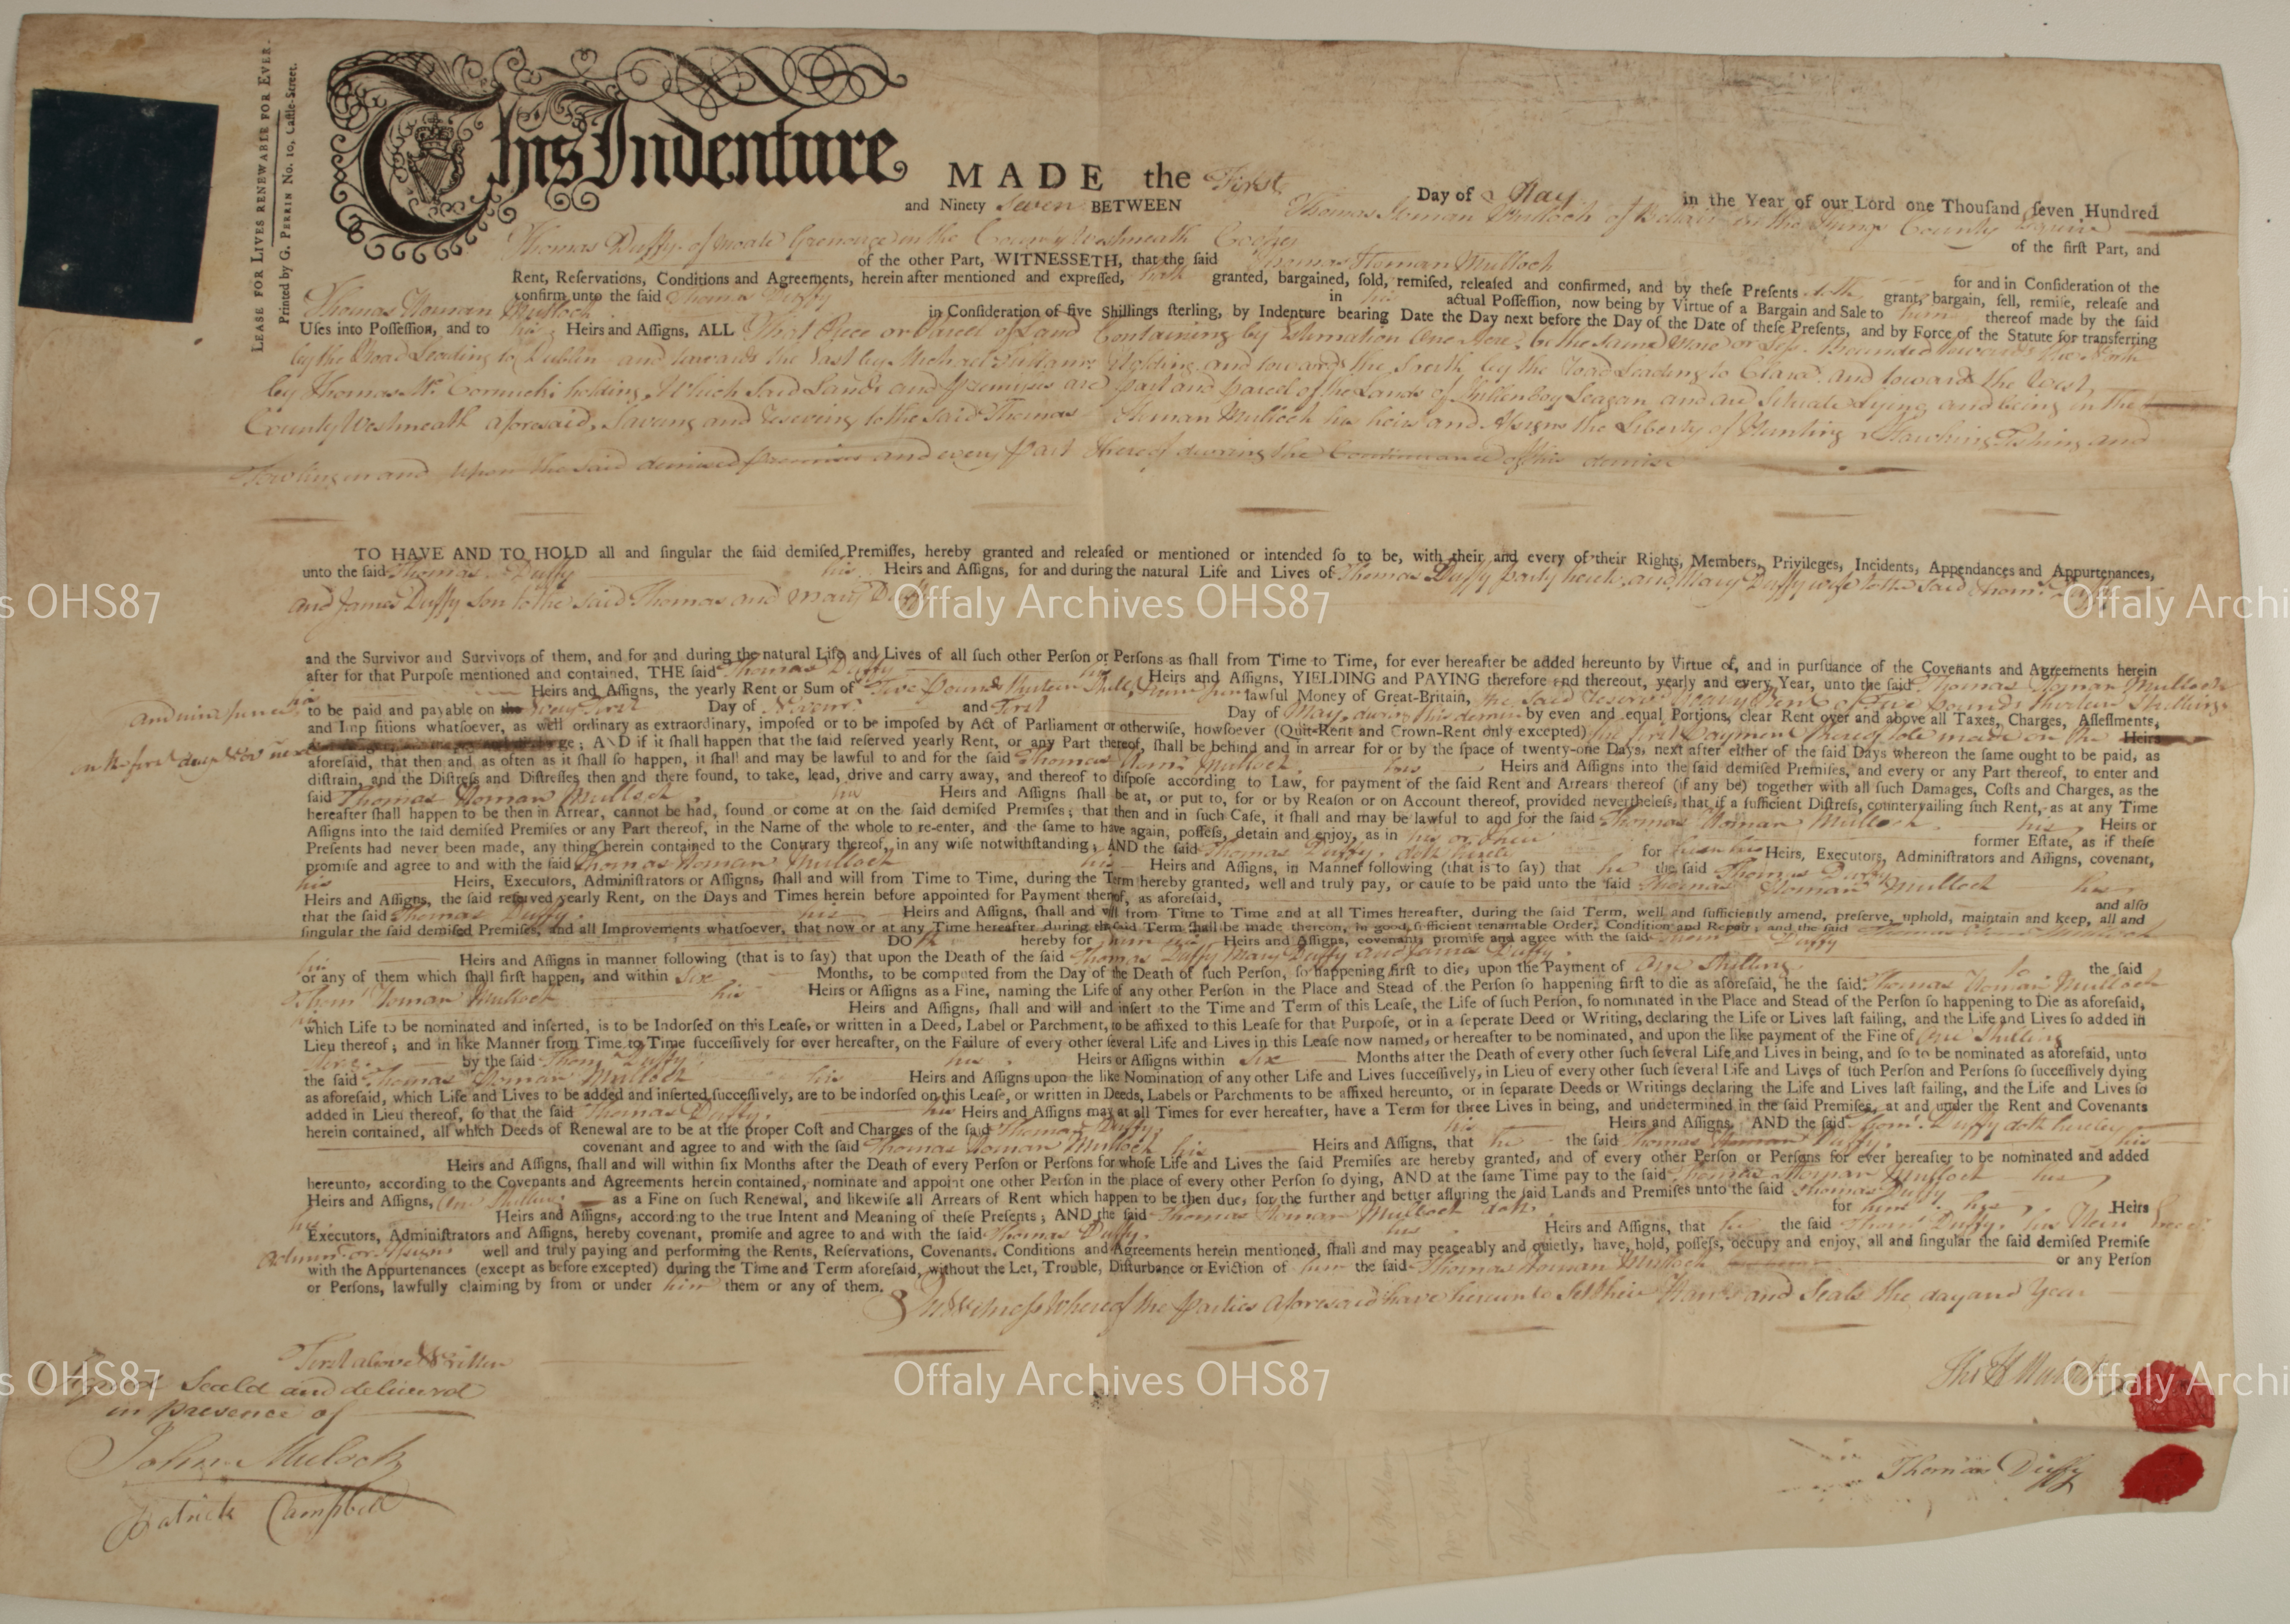 LEASE FOR LIVES RENEWABLE FOR EVER.
Printed by G. PERRIN No. 10, Caſtle-Street.
This Indenture MADE the First Day of May in the Year of our Lord one Thouſand ſeven Hundred
and Ninety Seven BETWEEN Thomas Homan Mulloch of in the Kings County Esquire of the firſt Part, and
Thomas Duffy of Moate Grenouge in the County Westmeath Cooper
of the other Part, WITNESSETH, that the ſaid Thomas Homan Mulloch for and in Conſideration of the
Rent, Reſervations, Conditions and Agreements, herein after mentioned and expreſſed, hath granted, bargained, ſold, remiſed, releaſed and confirmed, and by theſe Preſents doth grant, bargain, ſell, remiſe, releaſe and
confirm unto the ſaid Thomas Duffy in his actual Poſſeſſion, now being by Virtue of a Bargain and Sale to him thereof made by the ſaid
Thomas Homan Mulloch in Conſideration of five Shillings ſterling, by Indenture bearing Date the Day next before the Day of the Date of theſe Preſents, and by Force of the Statute for transferring
Uſes into Poſſeſſion, and to his Heirs and Aſſigns, ALL That Piece or Parcel of Land Containing by Estimation One Acre, be the same more or less Bounded towards the North
by the Road Leading to Dublin and towards the East by Michael Holding and towards the South by the Road Leading to Clara and towards the West
by Thomas Mc Cormicks holding, Which Said Lands and Premises are part and parcel of the Lands of and are Situate Lying and being in the
County Westmeath aforesaid, Saving and Reserving to the Said Thomas Homan Mulloch his heirs and Assigns the Liberty of Hunting Hawking Fishing and
Fowling in and upon the said demised premises and every part thereof during the Continuance of this demise
TO HAVE AND TO HOLD all and ſingular the ſaid demiſed Premiſſes, hereby granted and releaſed or mentioned or intended ſo to be, with their and every of their Rights, Members, Privileges, Incidents, Appendances and Appurtenances,
unto the ſaid Thomas Duffy his Heirs and Aſſigns, for and during the natural Life and Lives of Thomas Duffy party hereto, and Mary Duffy wife to the Said Thoms Duffy
and James Duffy Son to the said Thomas and Mary Duffy
and the Survivor and Survivors of them, and for and during the natural Life and Lives of all ſuch other Perſon or Perſons as ſhall from Time to Time, for ever hereafter be added hereunto by Virtue of, and in purſuance of the Covenants and Agreements herein
after for that Purpoſe mentioned and contained, THE ſaid Thomas Duffy his Heirs and Aſſigns, YIELDING and PAYING therefore and thereout, yearly and every Year, unto the ſaid Thomas Homan Mulloch
his Heirs and Aſſigns, the yearly Rent or Sum of Five Pounds thirteen Shills & nine pence lawful Money of Great-Britain, the Said Reserved Yearly Rent of Five Pounds thirteen Shillings
and nine pence to be paid and payable on the every first Day of Novemr and First Day of May during this demise by even and equal Portions, clear Rent over and above all Taxes, Charges, Aſſeſſments,
and Impoſitions whatſoever, as well ordinary as extraordinary, impoſed or to be impoſed by Act of Parliament or otherwiſe, howſoever (Quit-Rent and Crown-Rent only excepted) the first Payment thereof to be made on the
on the first day of Nov next; AND if it ſhall happen that the ſaid reſerved yearly Rent, or any Part thereof, ſhall be behind and in arrear for or by the ſpace of twenty-one Days, next after either of the ſaid Days whereon the ſame ought to be paid, as
aforeſaid, that then and as often as it ſhall ſo happen, it ſhall and may be lawful to and for the ſaid Thomas Homn Mulloch his Heirs and Aſſigns into the ſaid demiſed Premiſes, and every or any Part thereof, to enter and
diſtrain, and the Diſtreſs and Diſtreſſes then and there found, to take, lead, drive and carry away, and thereof to diſpoſe according to Law, for payment of the ſaid Rent and Arrears thereof (if any be) together with all ſuch Damages, Coſts and Charges, as the
ſaid Thomas Homan Mulloch his Heirs and Aſſigns ſhall be at, or put to, for or by Reaſon or on Account thereof, provided nevertheleſs, that if a ſufficient Diſtreſs, countervailing ſuch Rent, as at any Time
hereafter ſhall happen to be then in Arrear, cannot be had, found or come at on the ſaid demiſed Premiſes; that then and in ſuch Caſe, it ſhall and may be lawful to and for the ſaid Thomas Homan Mulloch his Heirs or
Aſſigns into the ſaid demiſed Premiſes or any Part thereof, in the Name of the whole to re-enter, and the ſame to have again, poſſeſs, detain and enjoy, as in his or their former Eſtate, as if theſe
Preſents had never been made, any thing herein contained to the Contrary thereof, in any wiſe notwithſtanding, AND the ſaid Thomas Duffy doth hereby for Heirs, Executors, Adminiſtrators and Aſſigns, covenant,
promiſe and agree to and with the ſaid Thomas Homan Mulloch his Heirs and Aſſigns, in Manner following (that is to ſay) that he the ſaid Thomas Duffy
his Heirs, Executors, Adminiſtrators or Aſſigns, ſhall and will from Time to Time, during the Term hereby granted, well and truly pay, or cauſe to be paid unto the ſaid Thomas Homan Mulloch his
Heirs and Aſſigns, the ſaid reſerved yearly Rent, on the Days and Times herein before appointed for Payment thereof, as aforeſaid, and alſo
that the ſaid Thomas Duffy his Heirs and Aſſigns, ſhall and will from Time to Time and at all Times hereafter, during the ſaid Term, well and ſufficiently amend, preſerve, uphold, maintain and keep, all and
ſingular the ſaid demiſed Premiſes, and all Improvements whatſoever, that now or at any Time hereafter during the ſaid Term ſhall be made thereon, in good, ſufficient tenantable Order, Condition and Repair; and the ſaid Thomas Homan Mulloch
DOth hereby for him his Heirs and Aſſigns, covenant, promiſe and agree with the ſaid Thoms Duffy
his Heirs and Aſſigns in manner following (that is to ſay) that upon the Death of the ſaid Thomas Duffy Mary Duffy and James Duffy
or any of them which ſhall firſt happen, and within Six Months, to be computed from the Day of the Death of ſuch Perſon, ſo happening firſt to die, upon the Payment of One Shilling to the ſaid
Thoms Homan Mulloch his Heirs or Aſſigns as a Fine, naming the Life of any other Perſon in the Place and Stead of the Perſon ſo happening firſt to die as aforeſaid, he the ſaid Thomas Homan Mulloch
his Heirs and Aſſigns, ſhall and will and inſert to the Time and Term of this Leaſe, the Life of ſuch Perſon, ſo nominated in the Place and Stead of the Perſon ſo happening to Die as aforeſaid,
which Life to be nominated and inſerted, is to be Indorſed on this Leaſe, or written in a Deed, Label or Parchment, to be affixed to this Leaſe for that Purpoſe, or in a ſeperate Deed or Writing, declaring the Life or Lives laſt failing, and the Life and Lives ſo added in
Lieu thereof; and in like Manner from Time to Time ſucceſſively for over hereafter, on the Failure of every other ſeveral Life and Lives in this Leaſe now named, or hereafter to be nominated, and upon the like payment of the Fine of One Shilling
by the ſaid Thoms Duffy his Heirs or Aſſigns within Six Months after the Death of every other ſuch ſeveral Life and Lives in being, and ſo to be nominated as aforeſaid, unto
the ſaid Thomas Homan Mulloch his Heirs and Aſſigns upon the like Nomination of any other Life and Lives ſucceſſively, in Lieu of every other ſuch ſeveral Life and Lives of ſuch Perſon and Perſons ſo ſucceſſively dying
as aforeſaid, which Life and Lives to be added and inſerted ſucceſſively, are to be indorſed on this Leaſe, or written in Deeds, Labels or Parchments to be affixed hereunto, or in ſeparate Deeds or Writings declaring the Life and Lives laſt failing, and the Life and Lives ſo
added in Lieu thereof, ſo that the ſaid Thomas Duffy, his Heirs and Aſſigns may at all Times for ever hereafter, have a Term for three Lives in being, and undetermined in the ſaid Premiſes, at and under the Rent and Covenants
herein contained, all which Deeds of Renewal are to be at the proper Coſt and Charges of the ſaid Thomas Duffy his Heirs and Aſſigns, AND the ſaid Thoms Duffy doth hereby
covenant and agree to and with the ſaid Thomas Homan Mulloch his Heirs and Aſſigns, that he the ſaid Thomas Duffy his
Heirs and Aſſigns, ſhall and will within ſix Months after the Death of every Perſon or Perſons for whoſe Life and Lives the ſaid Premiſes are hereby granted, and of every other Perſon or Perſons for ever hereafter to be nominated and added
hereunto, according to the Covenants and Agreements herein contained, nominate and appoint one other Perſon in the place of every other Perſon ſo dying, AND at the ſame Time pay to the ſaid Thomas Homan Mulloch his
Heirs and Aſſigns, One Shilling as a Fine on ſuch Renewal, and likewiſe all Arrears of Rent which happen to be then due, for the further and better aſſuring the ſaid Lands and Premiſes unto the ſaid Thomas Duffy
his Heirs and Aſſigns, according to the true Intent and Meaning of theſe Preſents; AND the ſaid Thomas Homan Mulloch doth for him his Heirs
Executors, Adminiſtrators and Aſſigns, hereby covenant, promiſe and agree to and with the ſaid Thomas Duffy his Heirs and Aſſigns, that he the ſaid Thoms Duffy his Heirs
well and truly paying and performing the Rents, Reſervations, Covenants, Conditions and Agreements herein mentioned, ſhall and may peaceably and quietly, have, hold, poſſeſs, occupy and enjoy, all and ſingular the ſaid demiſed Premiſe
with the Appurtenances (except as before excepted) during the Time and Term aforeſaid, without the Let, Trouble, Diſturbance or Eviction of him the ſaid Thomas Homan Mulloch or any Perſon
or Perſons, lawfully claiming by from or under him them or any of them.
In Witness Whereof the Parties aforesaid have hereunto Set their Hands and Seals the day and Year
First above Written
Signed Seald and deliverd
in presence of
John Mulock
Patrick Campbell
Thos H Mulock
Thomas Duffy
Offaly Archives OHS87